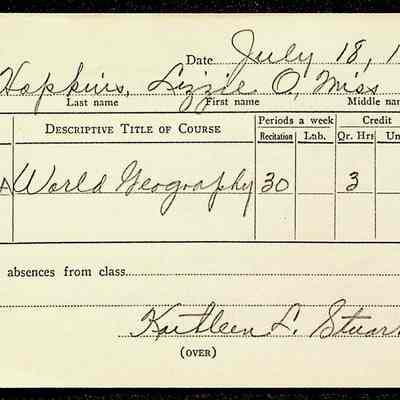 Date July 18, 1
Hopkins, Lizzie O, Miss
Last name First name Middle nam
DESCRIPTIVE TITLE OF COURSE Periods a week Credit
Recitation Lab. Qr. Hrs Un
A World Geography 30 3
absences from class
Kathleen L. Stuar
(OVER)